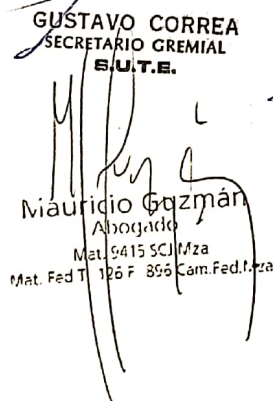 GUSTAVO CORREA
SECRETARIO GREMIAL
S.U.T.E.
Mauricio Guzmán
Abogado
Mat. 9415 SCJ Mza
Mat. Fed T° 126 F° 896 Cam.Fed.Mza